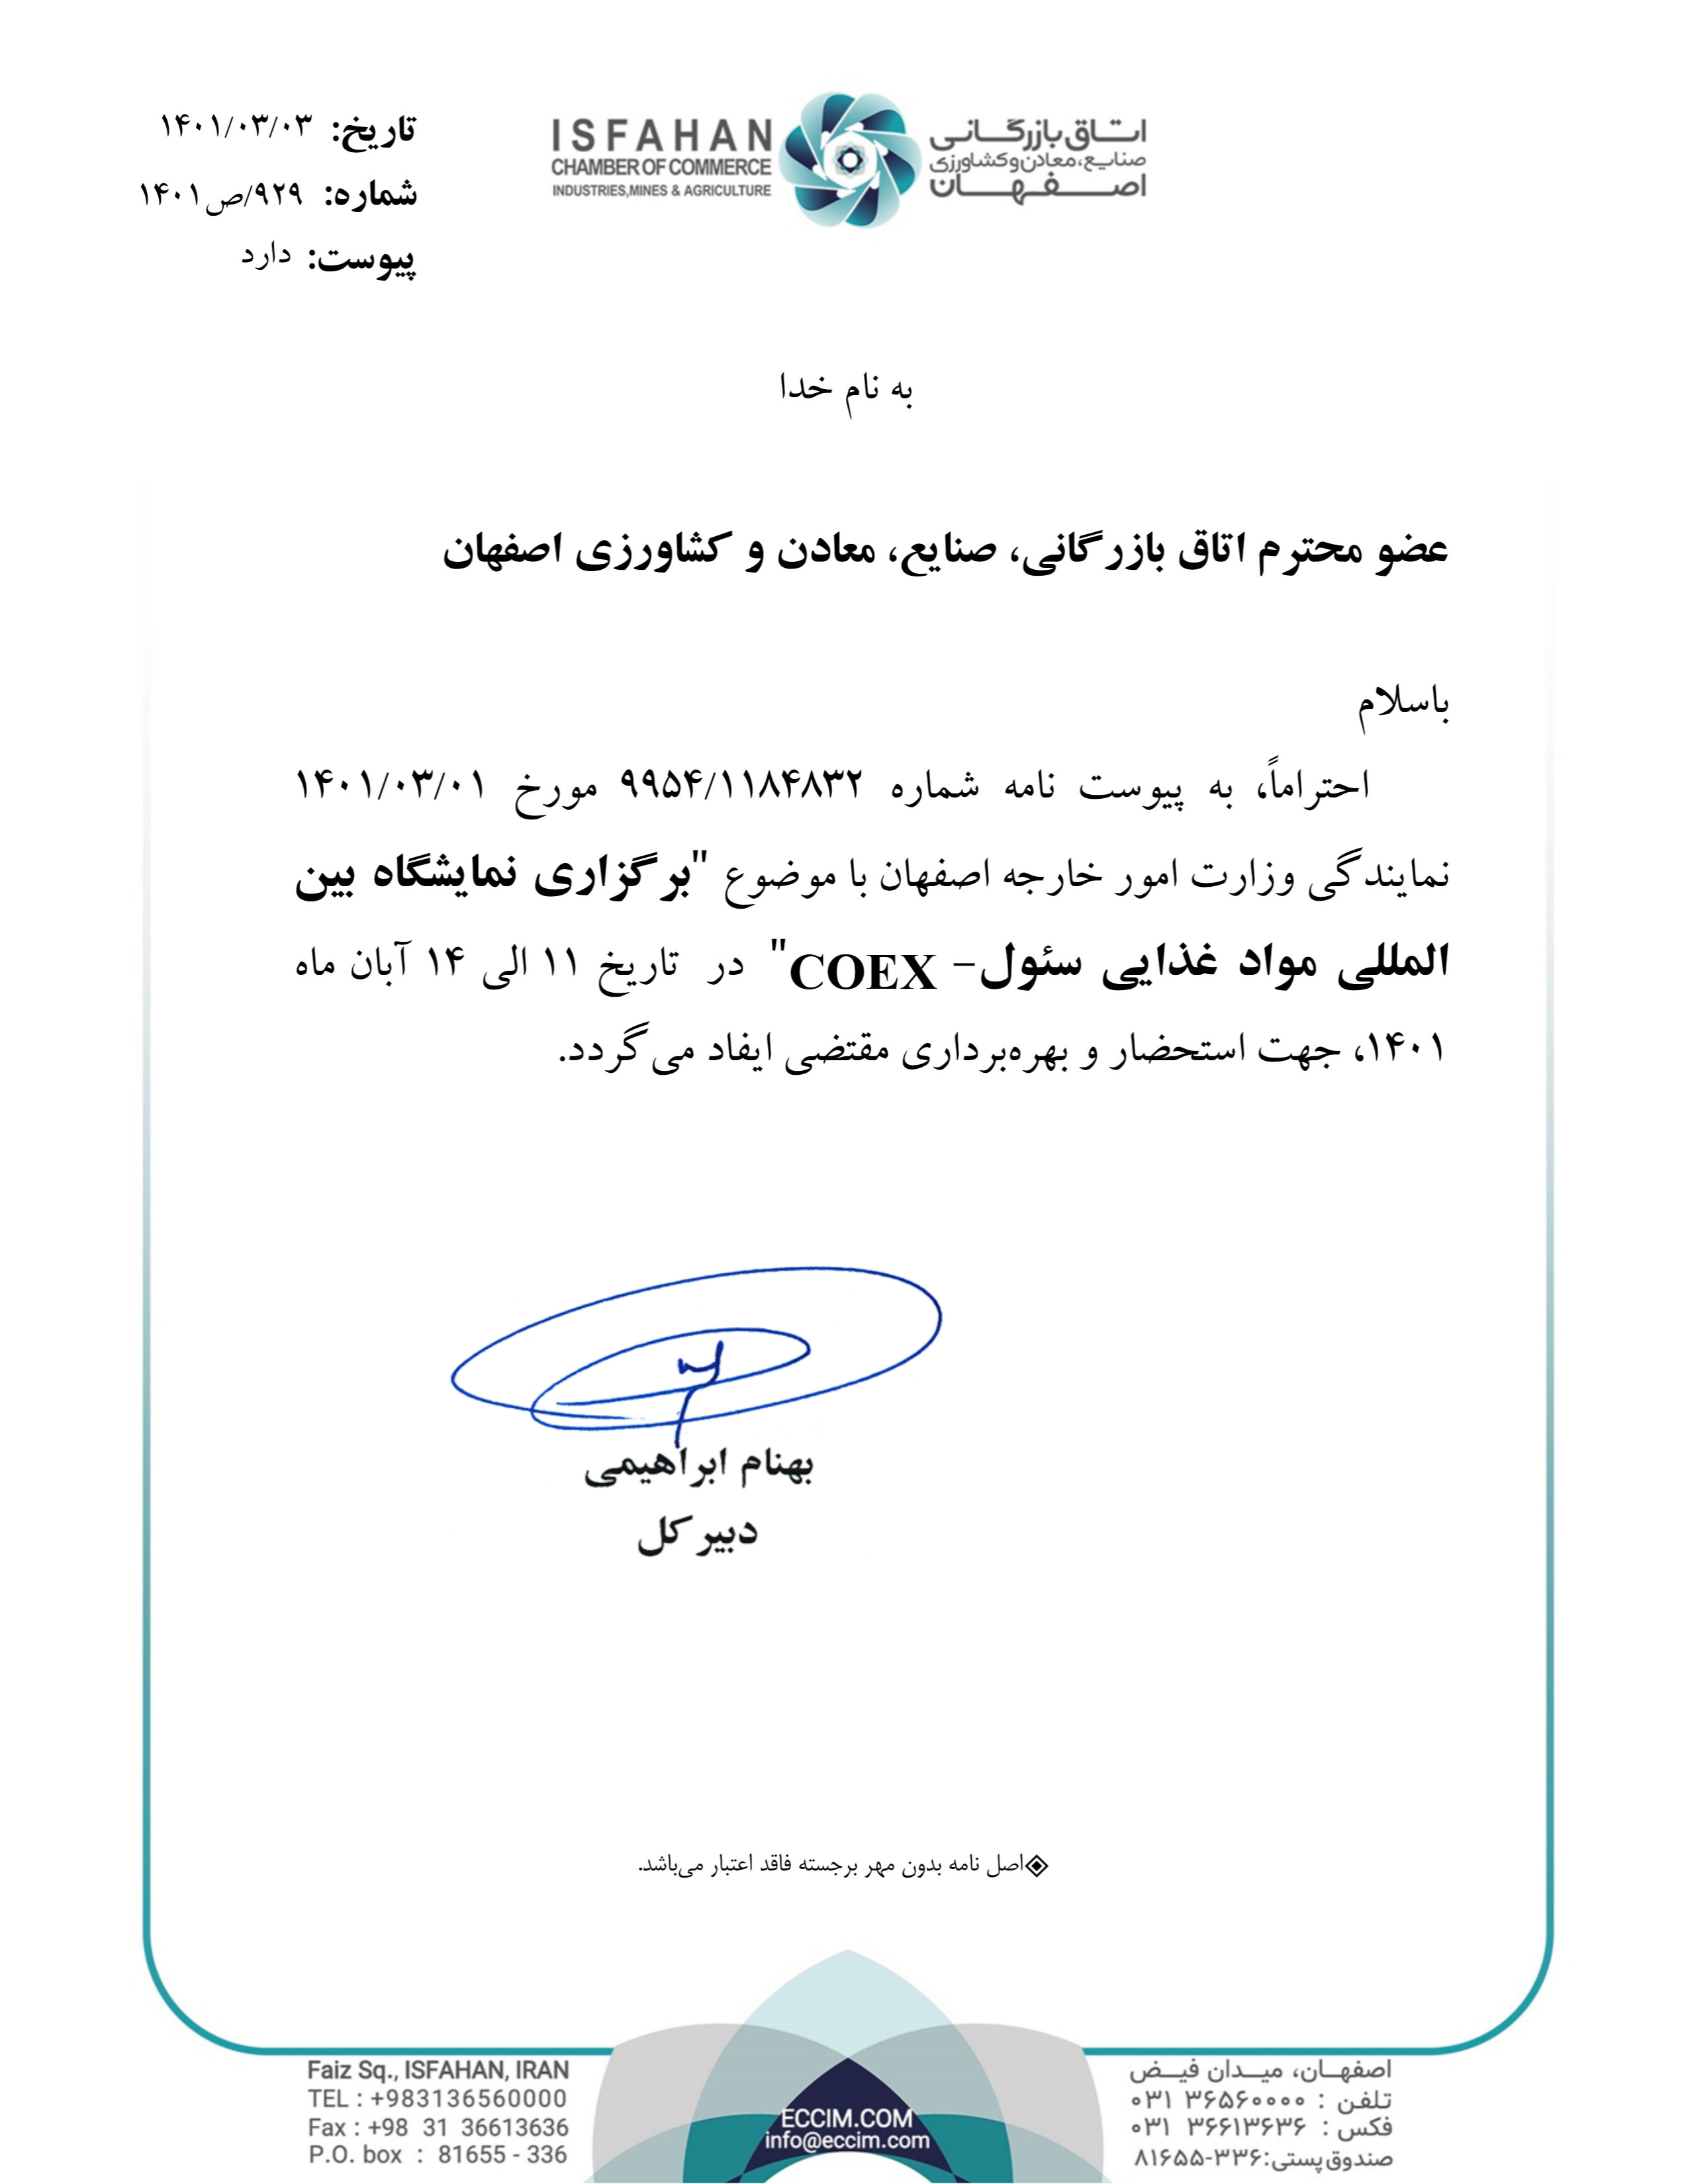 تاریخ: ۱۴۰۱/۰۳/۰۳
شماره: ۹۲۹/ص۱۴۰۱
پیوست: دارد
ISFAHAN
CHAMBER OF COMMERCE
INDUSTRIES,MINES & AGRICULTURE
اتاق بازرگانی
صنایع، معادن و کشاورزی
اصفهان
به نام خدا
عضو محترم اتاق بازرگانی، صنایع، معادن و کشاورزی اصفهان
باسلام
احتراماً، به پیوست نامه شماره ۹۹۵۴/۱۱۸۴۸۳۲ مورخ ۱۴۰۱/۰۳/۰۱
نمایندگی وزارت امور خارجه اصفهان با موضوع "برگزاری نمایشگاه بین
المللی مواد غذایی سئول- COEX" در تاریخ ۱۱ الی ۱۴ آبان ماه
۱۴۰۱، جهت استحضار و بهره‌برداری مقتضی ایفاد می‌گردد.
بهنام ابراهیمی
دبیر کل
اصل نامه بدون مهر برجسته فاقد اعتبار می‌باشد.
Faiz Sq., ISFAHAN, IRAN
TEL : +983136560000
Fax : +98 31 36613636
P.O. box : 81655 - 336
ECCIM.COM
info@eccim.com
اصفهان، میدان فیض
تلفن : ۳۶۵۶۰۰۰۰ ۰۳۱
فکس : ۳۶۶۱۳۶۳۶ ۰۳۱
صندوق پستی:۳۳۶-۸۱۶۵۵